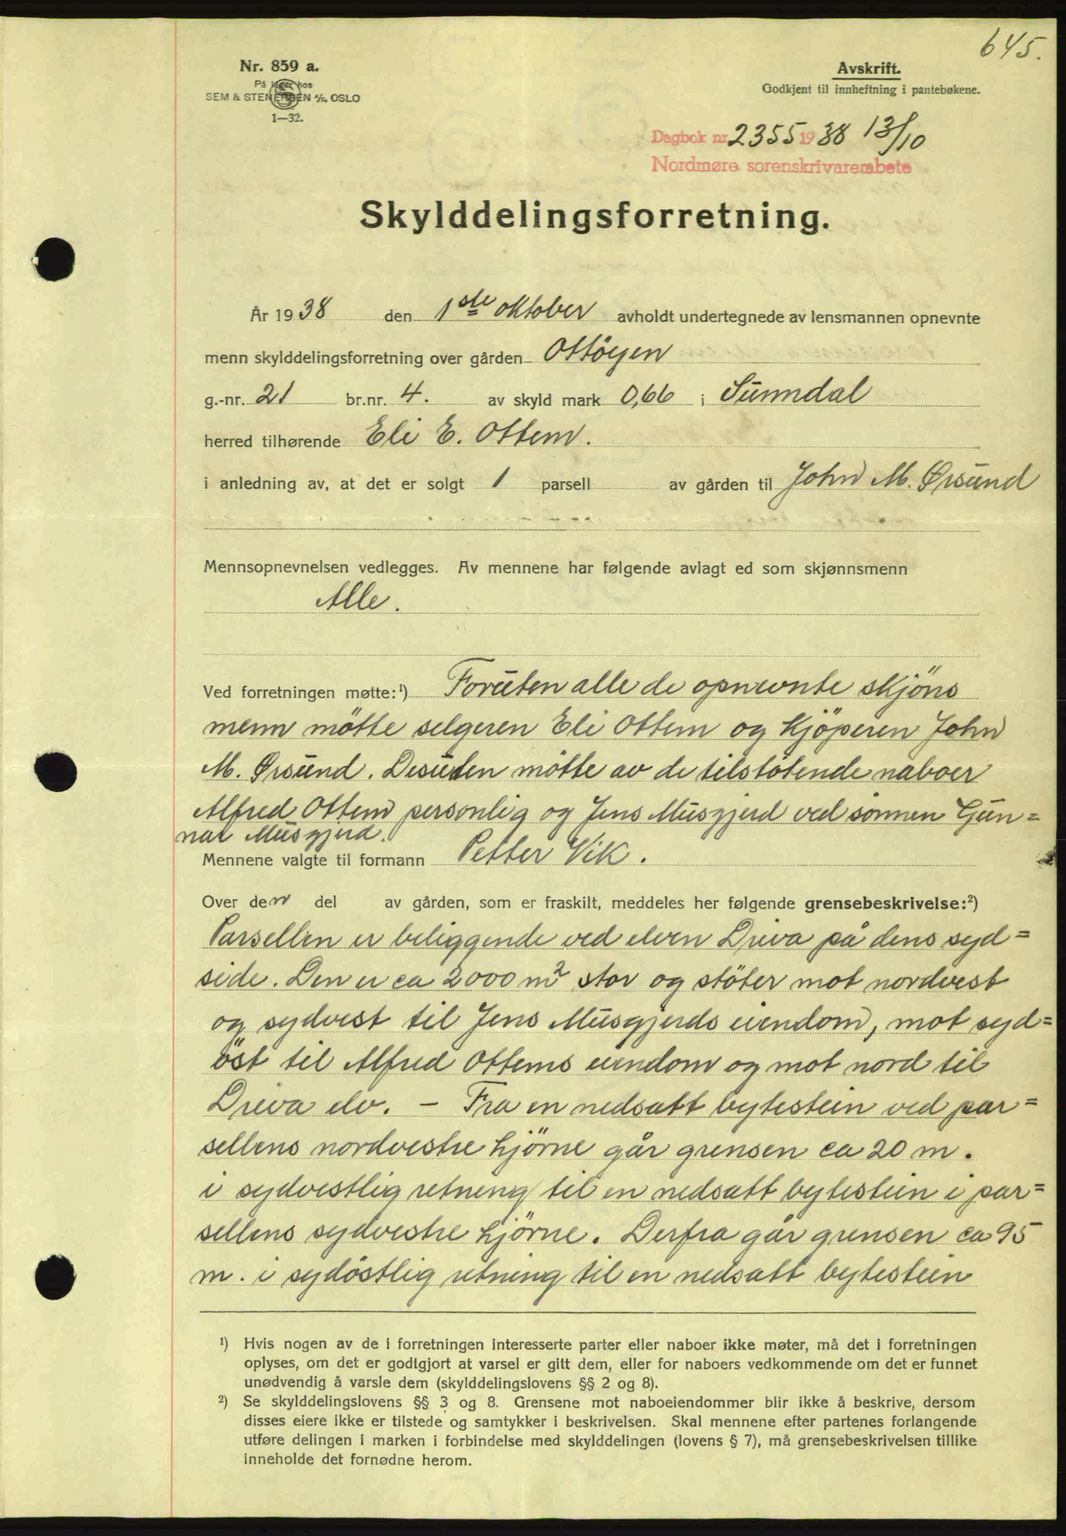 645.
Nr. 859 a.
På lager hos
SEM & STENERSEN A/S, OSLO
1—32.
Avskrift.
Godkjent til innheftning i pantebøkene.
Dagbok nr. 2355 1938 13/10
Nordmøre sorenskrivarembete
Skylddelingsforretning.
År 1938 den 1ste oktober avholdt undertegnede av lensmannen opnevnte
menn skylddelingsforretning over gården Ottöyen
g.-nr. 21 br.nr. 4. av skyld mark 0,66 i Sunndal
herred tilhørende Eli E. Ottem.
i anledning av, at det er solgt 1 parsell av gården til John M. Ørsund
Mennsopnevnelsen vedlegges. Av mennene har følgende avlagt ed som skjønnsmenn
Alle.
Ved forretningen møtte:¹) Foruten alle de opnevnte skjöns
menn mötte selgeren Eli Ottem og kjöperen John
M. Ørsund. Desuten mötte av de tilstötende naboer
Alfred Ottem personlig og Jens Musgjerd ved sönnen Gun=
nar Musgjerd.
Mennene valgte til formann Petter Vik.
Over den del av gården, som er fraskilt, meddeles her følgende grensebeskrivelse:²)
Parsellen er beliggende ved elven Driva på dens syd=
side. Den er ca 2000 m² stor og stöter mot nordvest
og sydvest til Jens Musgjerds eiendom, mot syd=
öst til Alfred Ottems eiendom og mot nord til
Driva elv. — Fra en nedsatt bytestein ved par=
sellens nordvestre hjörne går grensen ca 20 m.
i sydvestlig retning til en nedsatt bytestein i par=
sellens sydvestre hjörne. Derfra går grensen ca 95
m. i sydöstlig retning til en nedsatt bytestein
¹) Hvis nogen av de i forretningen interesserte parter eller naboer ikke møter, må det i forretningen
oplyses, om det er godtgjort at varsel er gitt dem, eller for naboers vedkommende om det er funnet
unødvendig å varsle dem (skylddelingslovens §§ 2 og 8).
²) Se skylddelingslovens §§ 3 og 8. Grensene mot naboeiendommer blir ikke å beskrive, dersom
disses eiere ikke er tilstede og samtykker i beskrivelsen. Skal mennene efter partenes forlangende
utføre delingen i marken i forbindelse med skylddelingen (lovens § 7), må grensebeskrivelsen tillike
inneholde det fornødne herom.